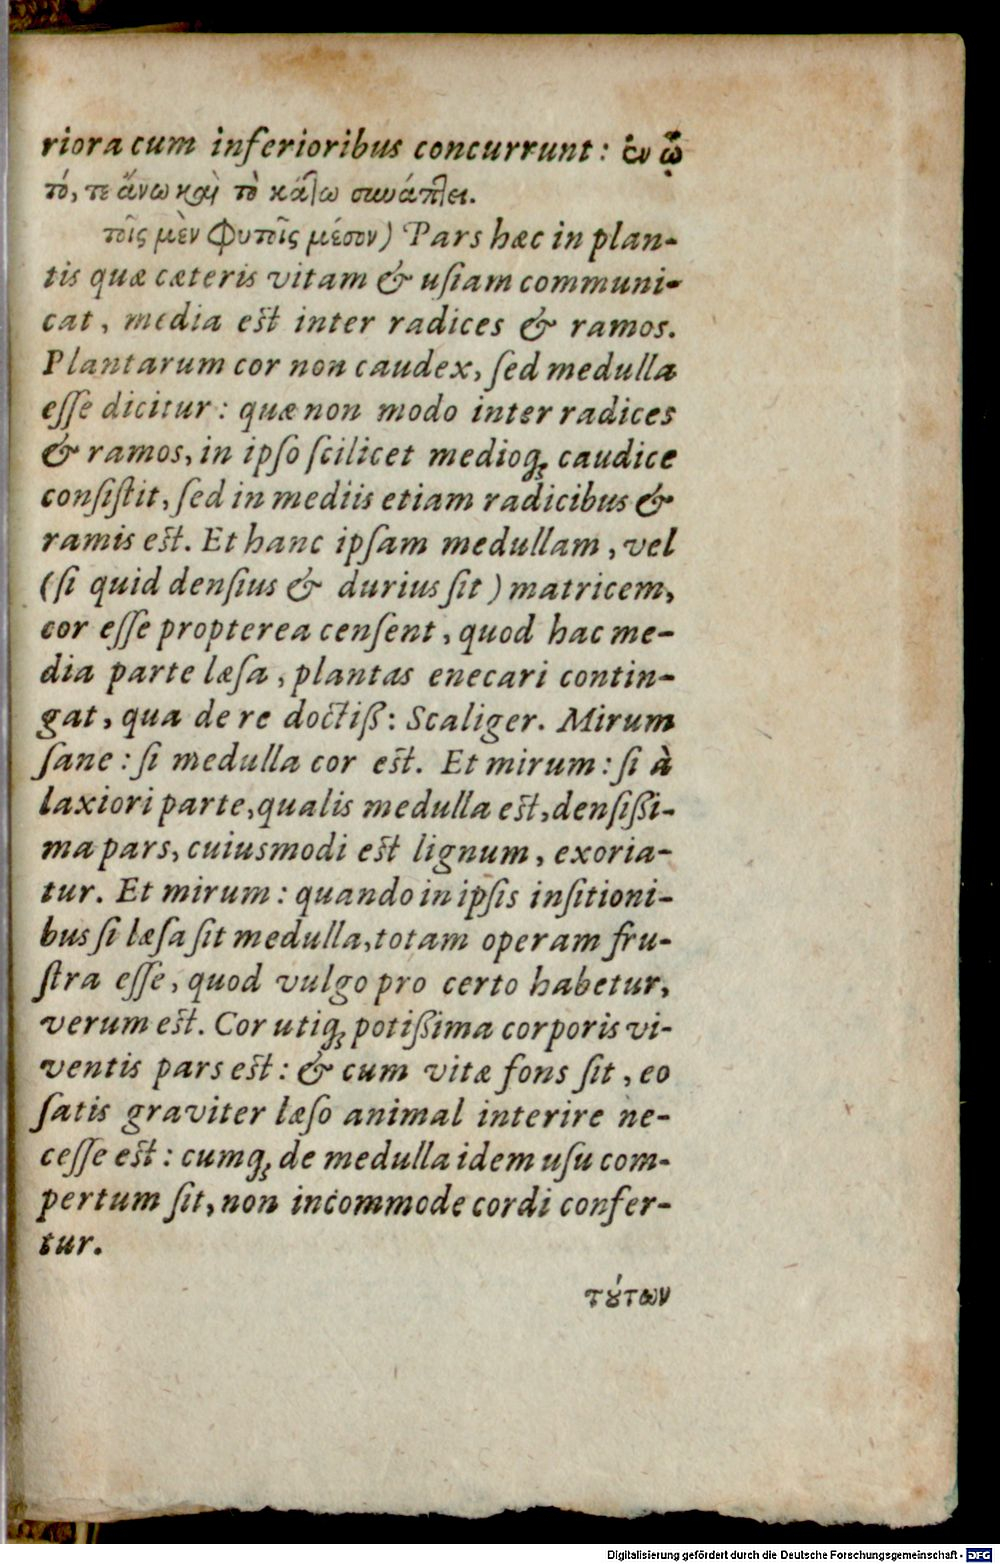 riora cum inferioribus concurrunt: ἐν ᾧ
τό, τε ἄνω καὶ τὸ κάτω συνάπτει.
τοῖς μὲν φυτοῖς μέσον) Pars hæc in plan-
tis quæ cæteris vitam & uſiam communi-
cat, media eſt inter radices & ramos.
Plantarum cor non caudex, ſed medulla
eſſe dicitur: quæ non modo inter radices
& ramos, in ipſo ſcilicet medioq́; caudice
conſiſtit, ſed in mediis etiam radicibus &
ramis eſt. Et hanc ipſam medullam, vel
(ſi quid denſius & durius ſit) matricem,
cor eſſe propterea cenſent, quod hac me-
dia parte læſa, plantas enecari contin-
gat, qua de re doctiß: Scaliger. Mirum
ſane: ſi medulla cor eſt. Et mirum: ſi à
laxiori parte, qualis medulla eſt, denſißi-
ma pars, cuiusmodi eſt lignum, exoria-
tur. Et mirum: quando in ipſis inſitioni-
bus ſi læſa ſit medulla, totam operam fru-
ſtra eſſe, quod vulgo pro certo habetur,
verum eſt. Cor utiq; potißima corporis vi-
ventis pars eſt: & cum vitæ fons ſit, eo
ſatis graviter læſo animal interire ne-
ceſſe eſt: cumq; de medulla idem uſu com-
pertum ſit, non incommode cordi confer-
tur.
τȣ́των
Digitalisierung gefördert durch die Deutsche Forschungsgemeinschaft - DFG